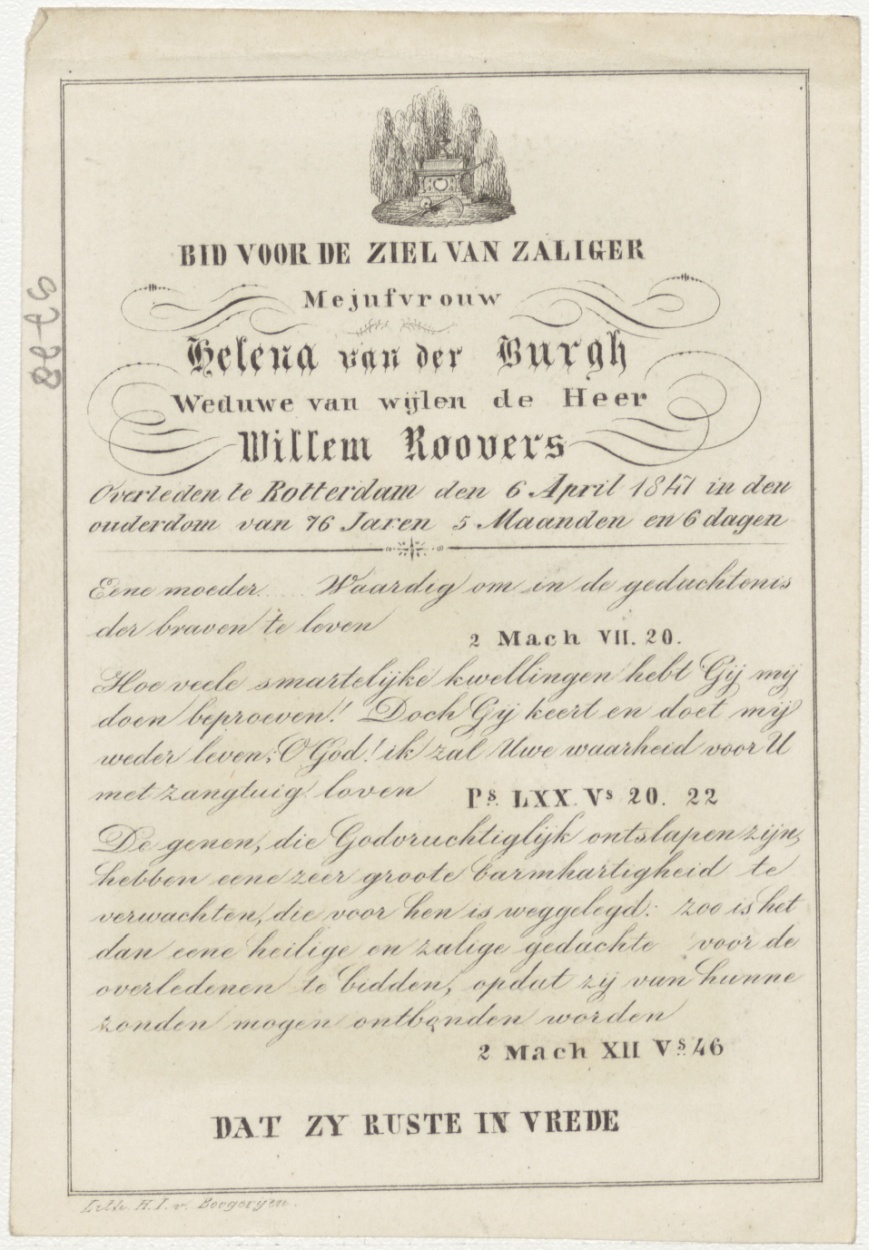 BID VOOR DE ZIEL VAN ZALIGER
Mejufvrouw
Helena van der Burgh
Weduwe van wijlen de Heer
Willem Roovers
Overleden te Rotterdam den 6 April 1847 in den
ouderdom van 76 Jaren 5 Maanden en 6 dagen
Eene moeder.... Waardig om in de gedachtenis
der braven te leven
2 Mach VII. 20.
Hoe veele smartelijke kwellingen hebt Gij mij
doen beproeven! Doch Gij keert en doet mij
weder leven; O God! ik zal Uwe waarheid voor U
met zangtuig loven
Ps. LXX. Vs 20. 22
De genen, die Godvruchtiglijk ontslapen zijn,
hebben eene zeer groote barmhartigheid te
verwachten, die voor hen is weggelegd: zoo is het
dan eene heilige en zalige gedachte voor de
overledenen te bidden, opdat zij van hunne
zonden mogen ontbonden worden
2 Mach XII Vs. 46
DAT ZY RUSTE IN VREDE
Lith. H. I. v.